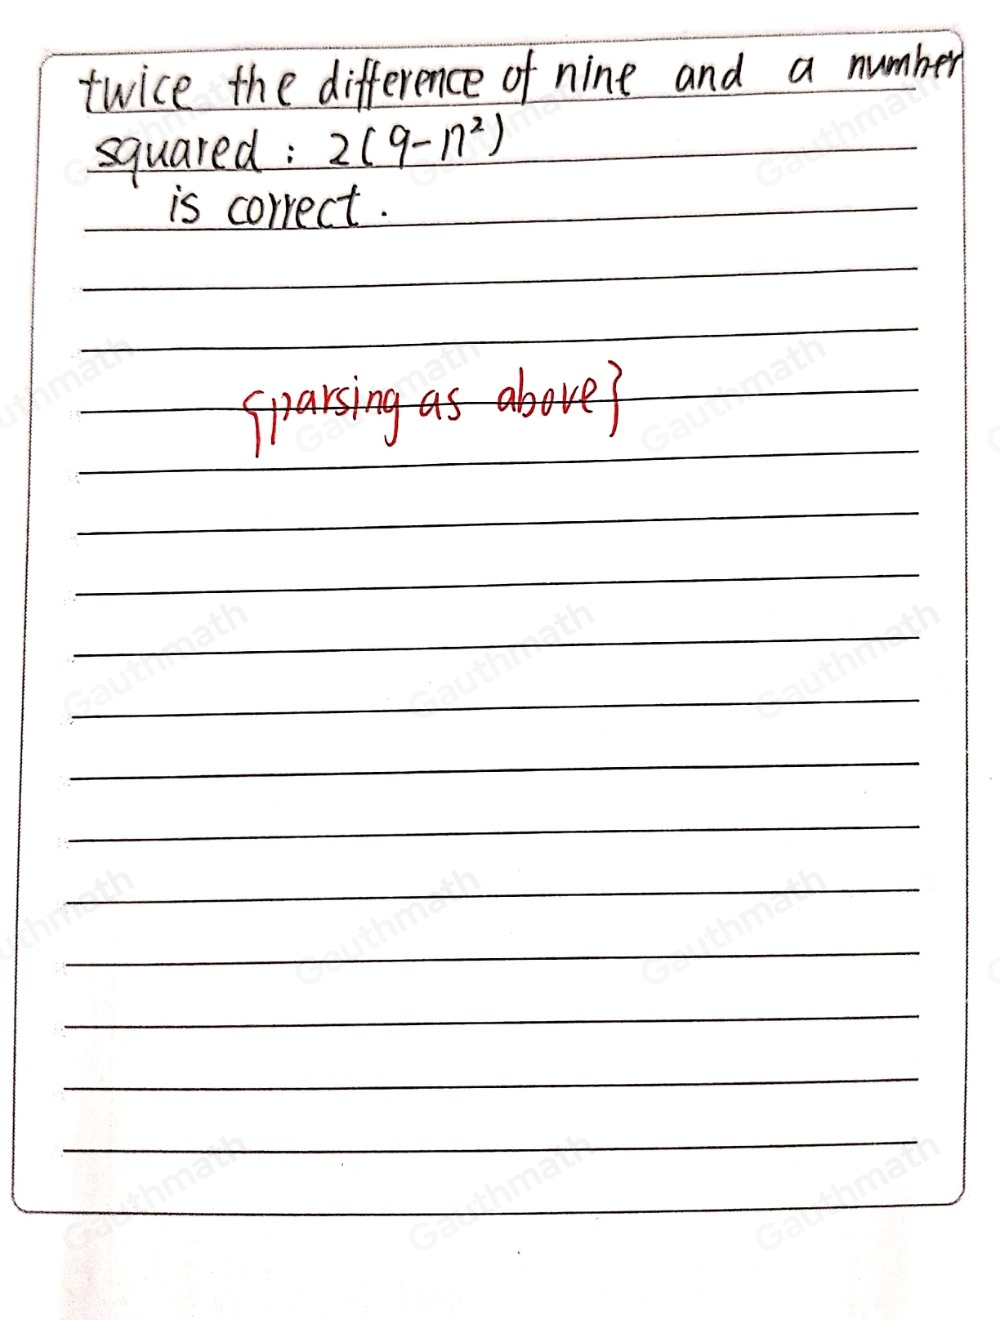 twice the difference of nine and a number
squared : 2(9-n²)
is correct.
{parsing as above}
Gauthmath